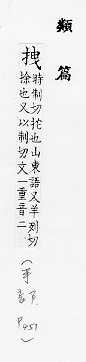 類篇
拽
特制切拕也山東語又羊列切
捈也又以制切文一重音二
(手
P457